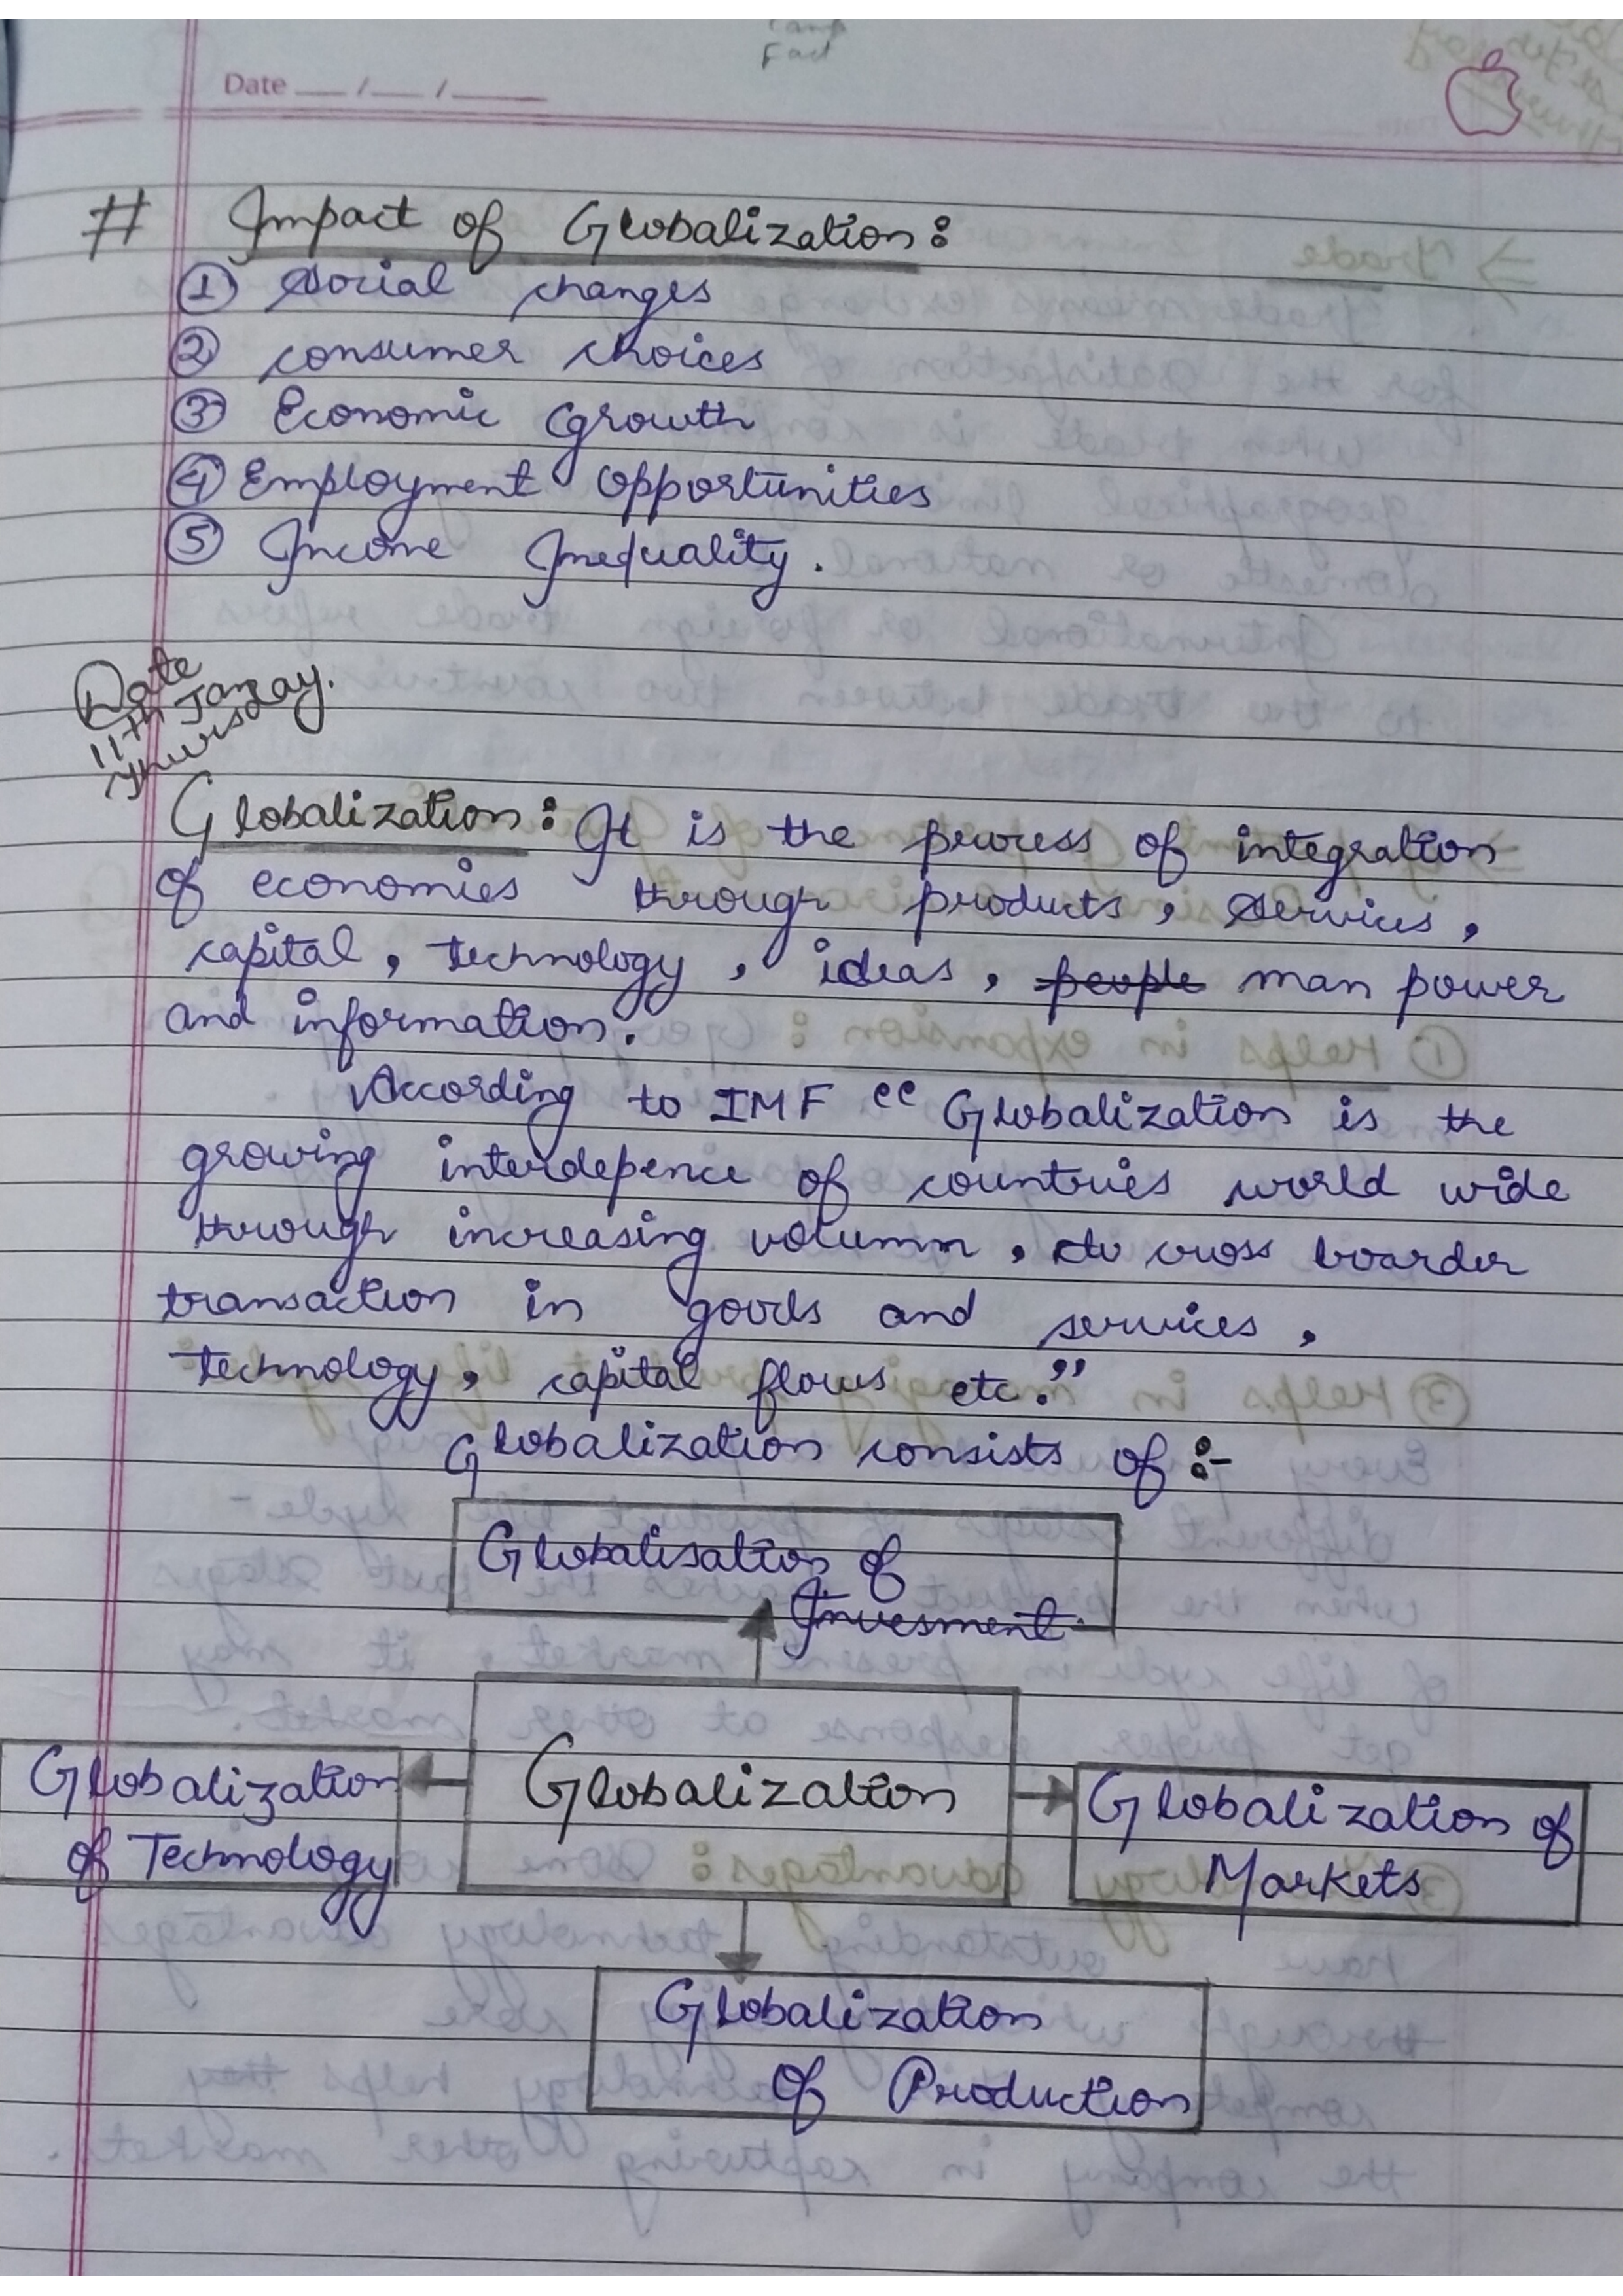 Date __/__/____
# Impact of Globalization:
① Social changes
② consumer choices
③ Economic Growth
④ Employment Opportunities
⑤ Income Inequality.
Date
11th Jan
Thursday.
Globalization: It is the process of integration
of economies through products, services,
capital, technology, ideas, people man power
and information.
According to IMF "Globalization is the
growing interdepence of countries world wide
through increasing volumn, to cross boarder
transaction in goods and services,
technology, capital flows etc."
Globalization consists of :-
Globalisation of
Invesment
Globalization
of Technology
Globalization
Globalization of
Markets
Globalization
of Production